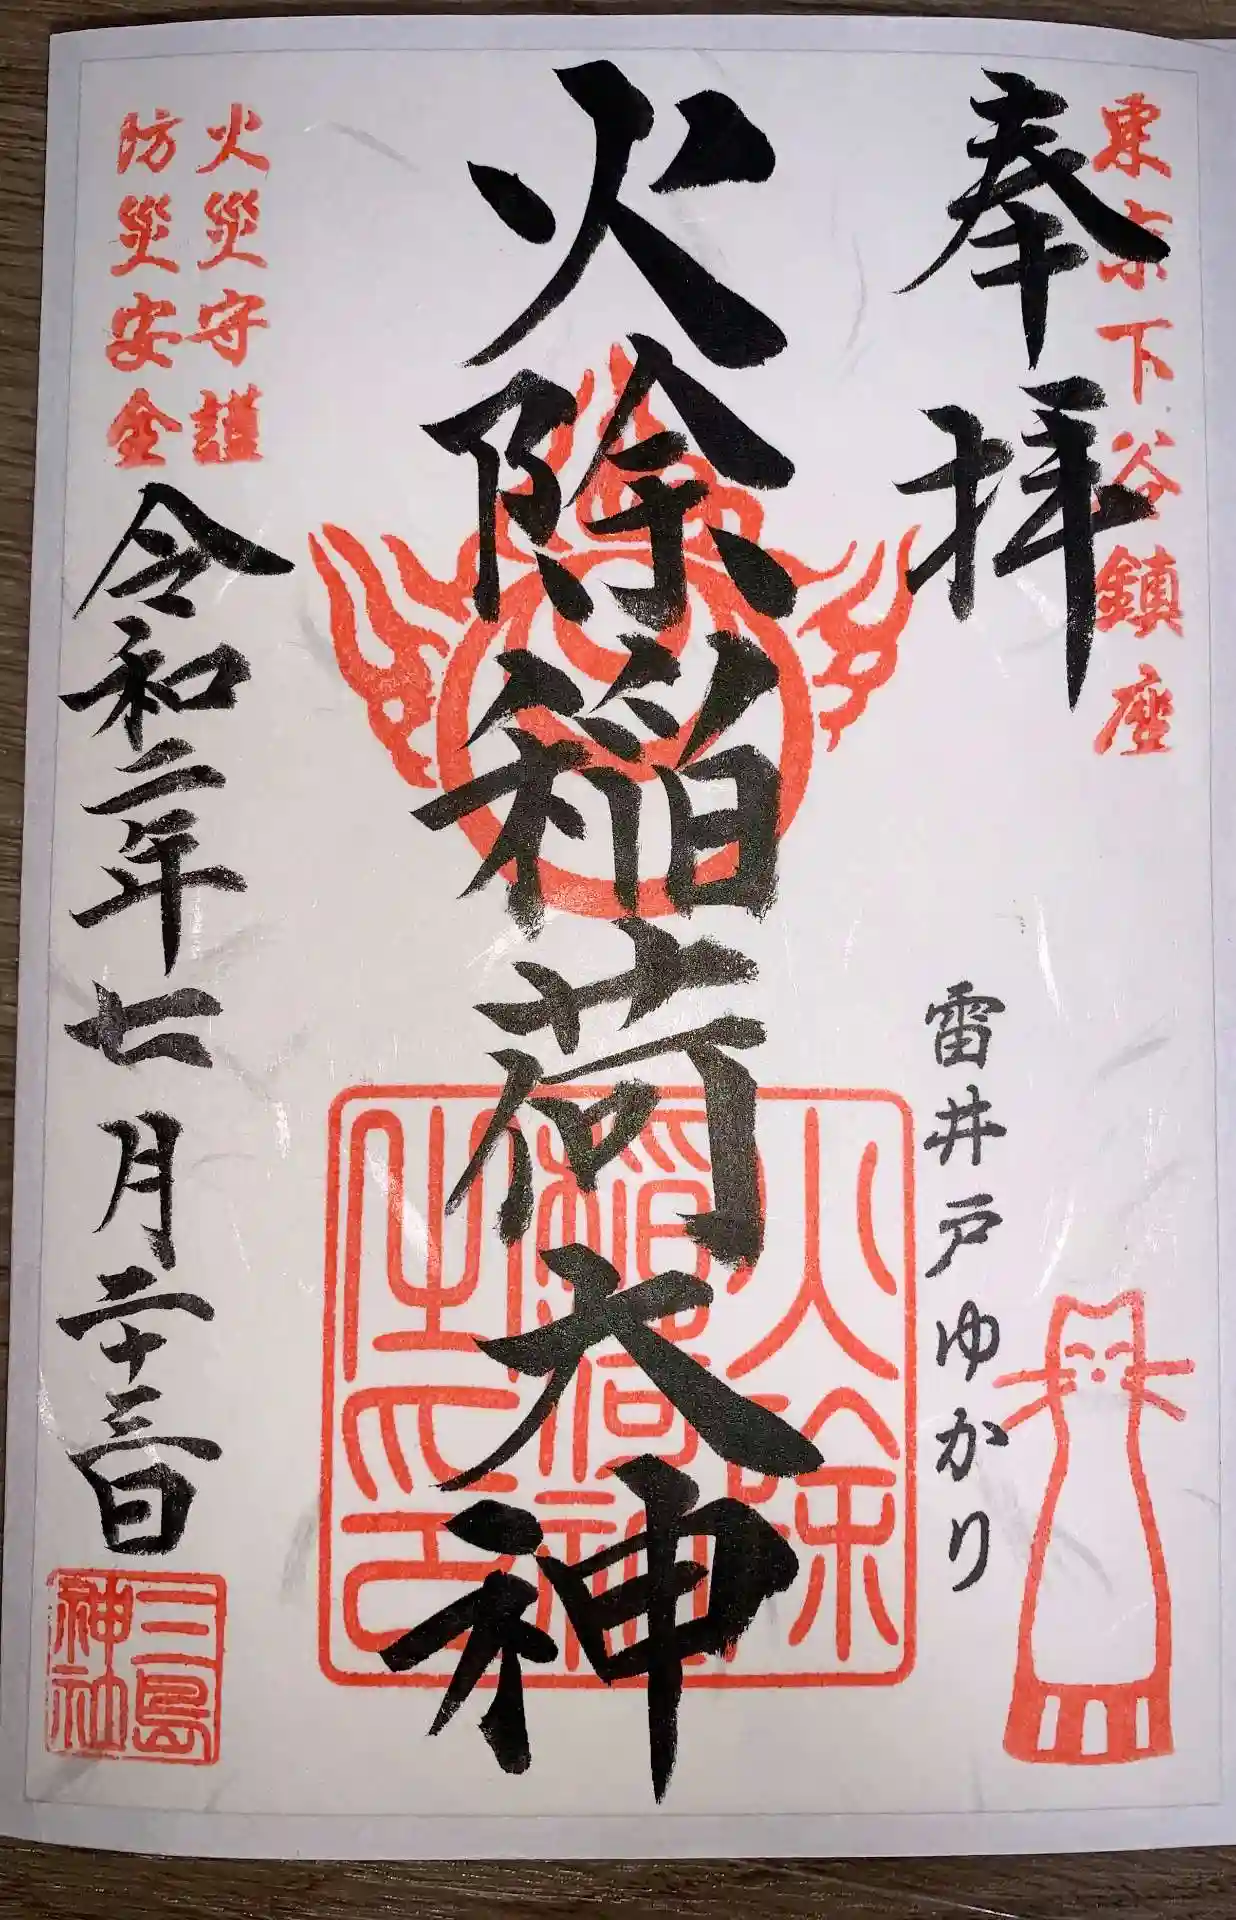 東京下谷鎮座
奉拝
雷井戸ゆかり
火除稲荷大神
火除
稲荷神
之印
火災守護
防災安全
令和二年七月二十三日
三島
神社